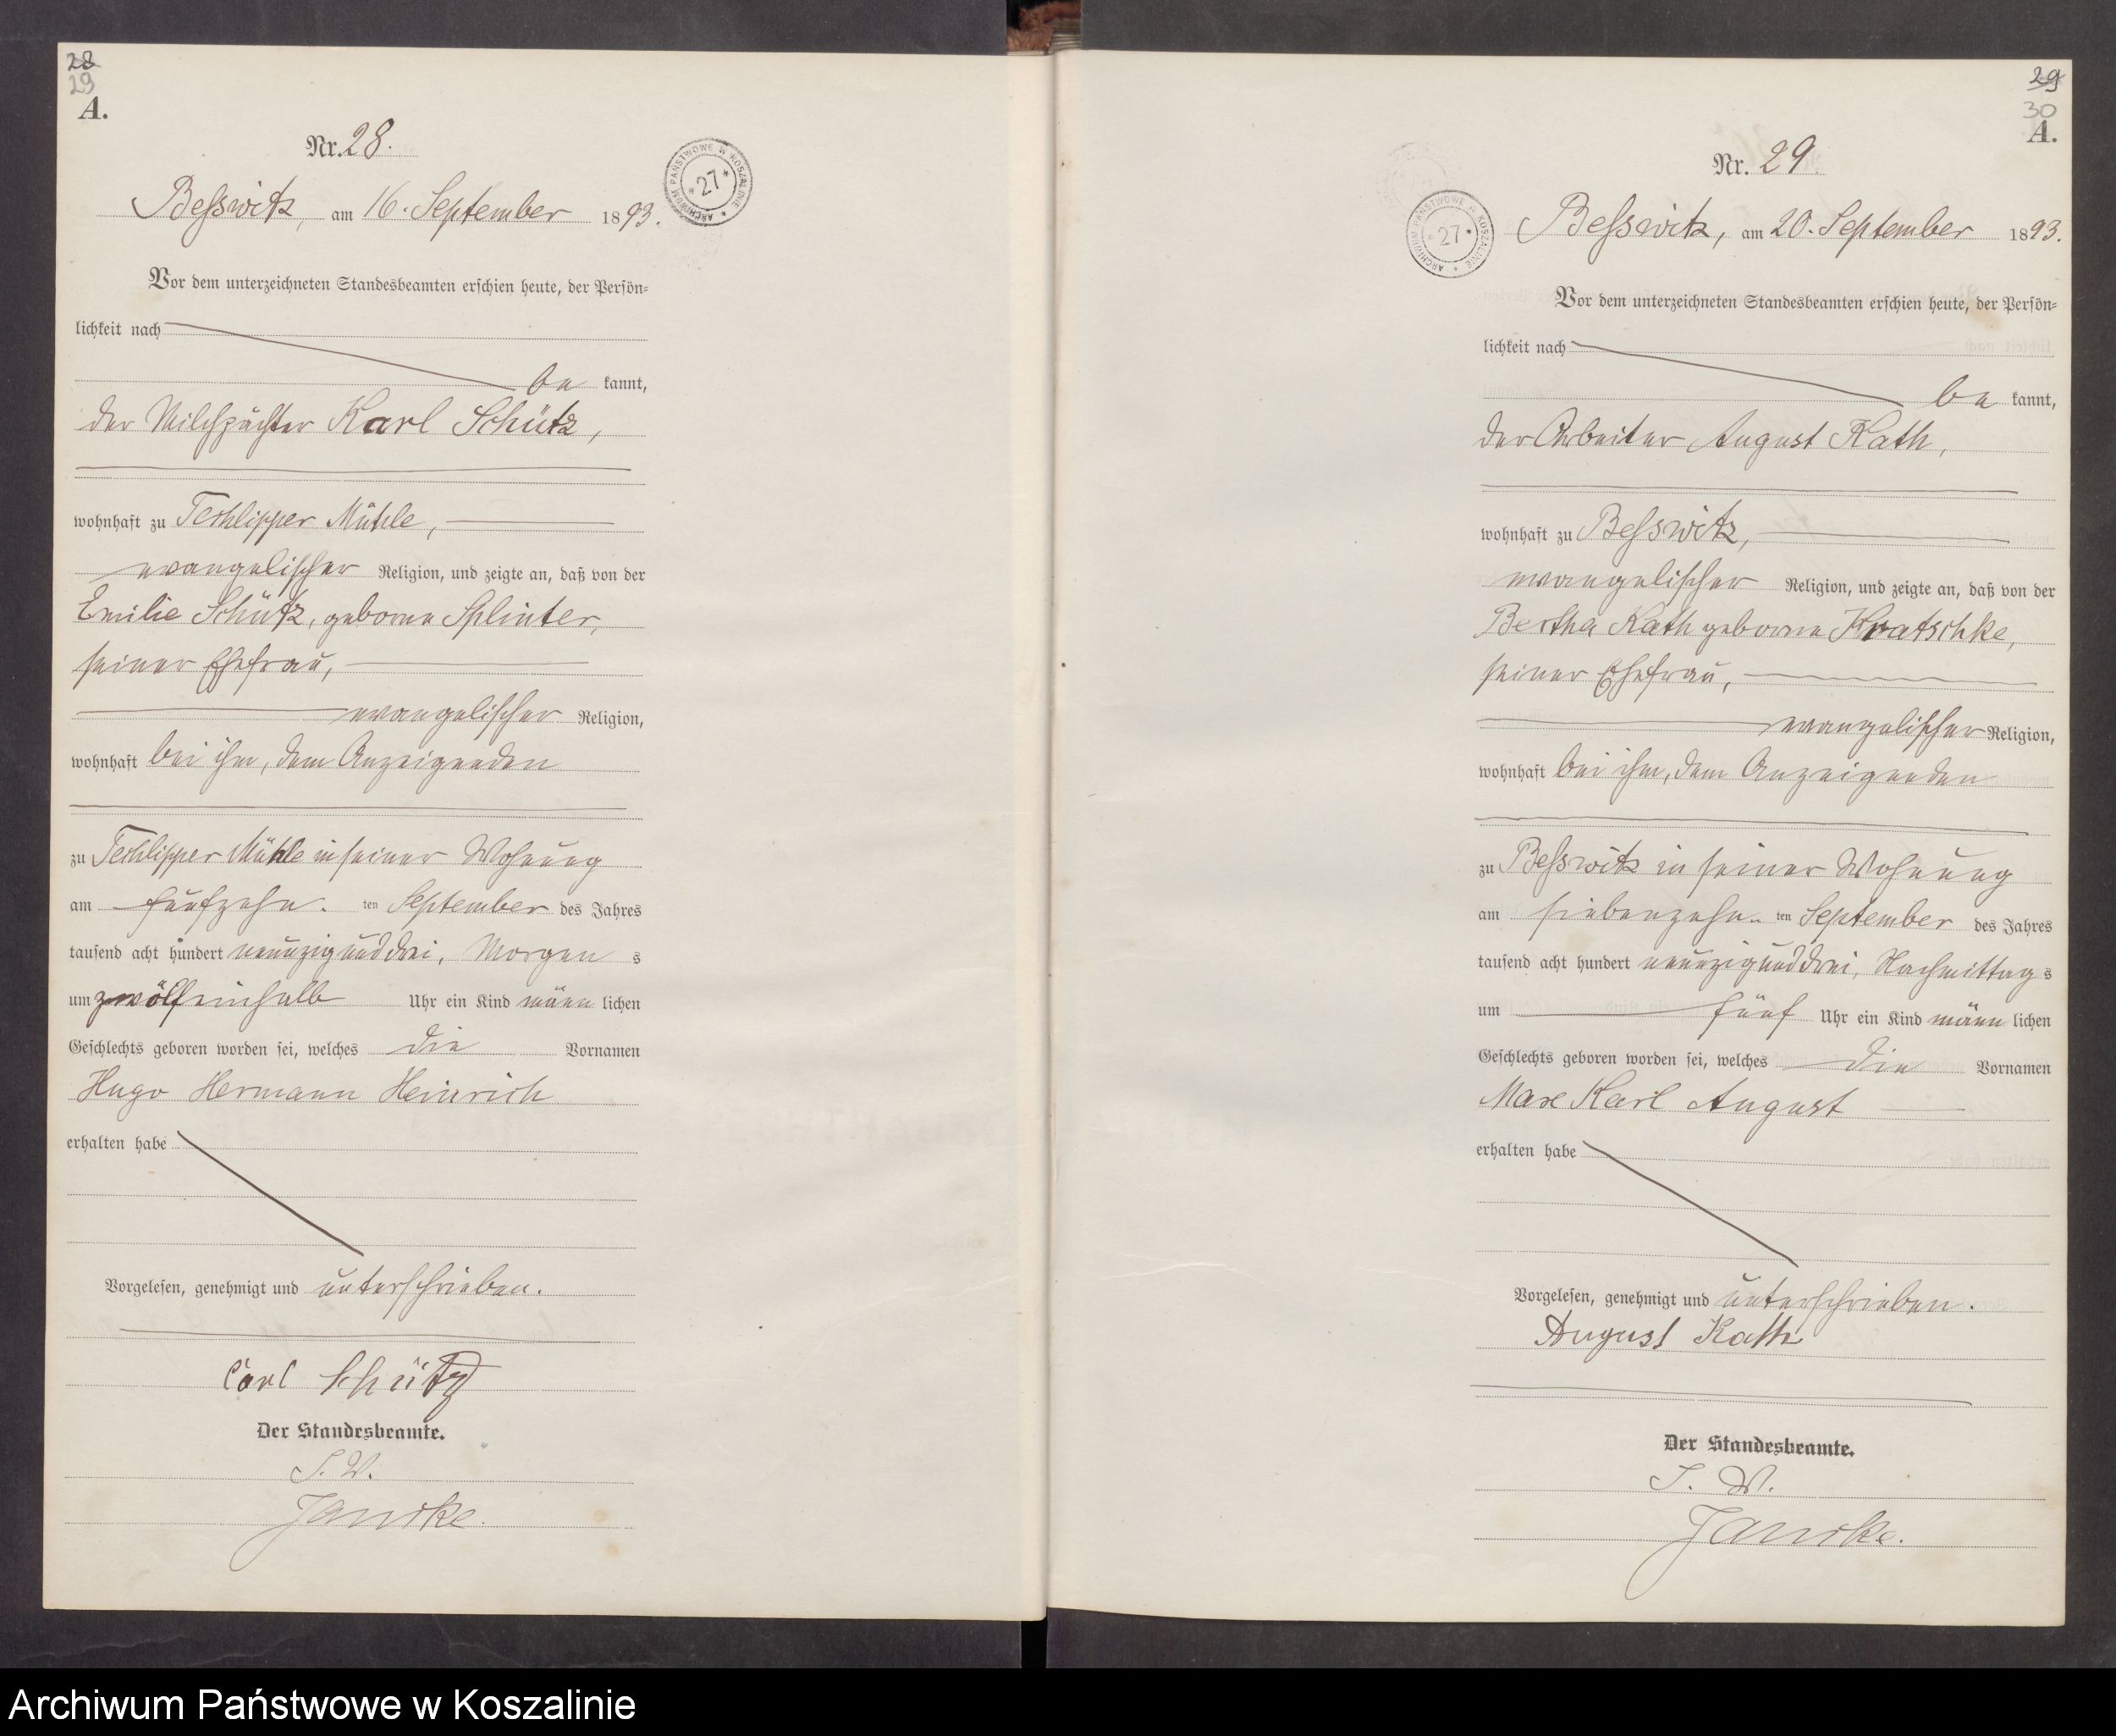 28
29
A.
Nr. 28.
ARCHIWUM PAŃSTWOWE W KOSZALINIE * 27 *
Beßswitz, am 16. September 1893.
Vor dem unterzeichneten Standesbeamten erschien heute, der Persön-
lichkeit nach
be kannt,
der Milchpächter Karl Schütz,
wohnhaft zu Techlipper Mühle,
evangelischer Religion, und zeigte an, daß von der
Emilie Schütz, geborne Splinter,
seiner Ehefrau,
evangelischer Religion,
wohnhaft bei ihm, dem Anzeigenden
zu Techlipper Mühle in seiner Wohnung
am fünfzehn- ten September des Jahres
tausend acht hundert neunzig und drei, Morgen s
um zwölfeinhalb Uhr ein Kind männ lichen
Geschlechts geboren worden sei, welches die Vornamen
Hugo Hermann Heinrich
erhalten habe
Vorgelesen, genehmigt und unterschrieben.
Carl Schütz
Der Standesbeamte.
J. V.
Janske.
29
30
A.
Nr. 29.
ARCHIWUM PAŃSTWOWE W KOSZALINIE * 27 *
Beßswitz, am 20. September 1893.
Vor dem unterzeichneten Standesbeamten erschien heute, der Persön-
lichkeit nach
be kannt,
der Arbeiter August Kath,
wohnhaft zu Beßswitz,
evangelischer Religion, und zeigte an, daß von der
Bertha Kath geborne Kratschke,
seiner Ehefrau,
evangelischer Religion,
wohnhaft bei ihm, dem Anzeigenden
zu Beßswitz in seiner Wohnung
am siebenzehn- ten September des Jahres
tausend acht hundert neunzig und drei, Nachmittag s
um fünf Uhr ein Kind männ lichen
Geschlechts geboren worden sei, welches die Vornamen
Max Karl August
erhalten habe
Vorgelesen, genehmigt und unterschrieben.
August Kath
Der Standesbeamte.
J. V.
Janske.
Archiwum Państwowe w Koszalinie